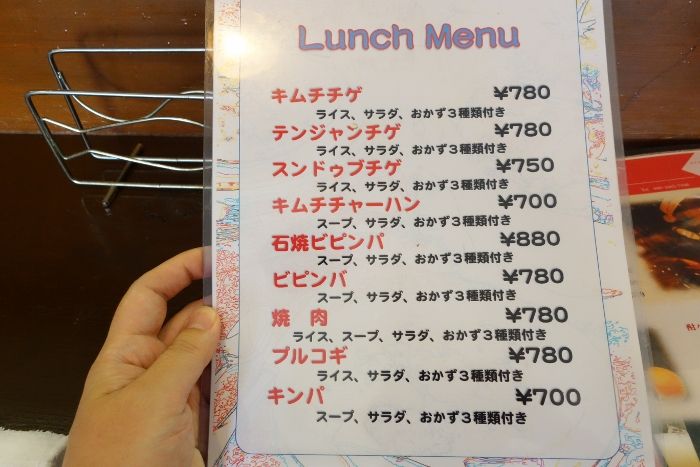 Lunch Menu
キムチチゲ ¥780
ライス、サラダ、おかず３種類付き
テンジャンチゲ ¥780
ライス、サラダ、おかず３種類付き
スンドゥブチゲ ¥750
ライス、サラダ、おかず３種類付き
キムチチャーハン ¥700
スープ、サラダ、おかず３種類付き
石焼ビピンパ ¥880
スープ、サラダ、おかず３種類付き
ビピンバ ¥780
スープ、サラダ、おかず３種類付き
焼　肉 ¥780
ライス、スープ、サラダ、おかず３種類付き
プルコギ ¥780
ライス、サラダ、おかず３種類付き
キンパ ¥700
スープ、サラダ、おかず３種類付き